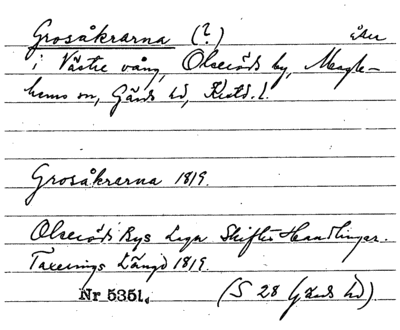 Grosåkrarna (?) åker
i Västre vång, Olseröds by, Magle-
hems sn, Gärds hd, Kristd. l.
Grosåkrarna 1819.
Olseröds Bys Laga Skiftes Handlingar.
Taxerings Längd 1819.
Nr 5351. (S 28 Gärds hd).